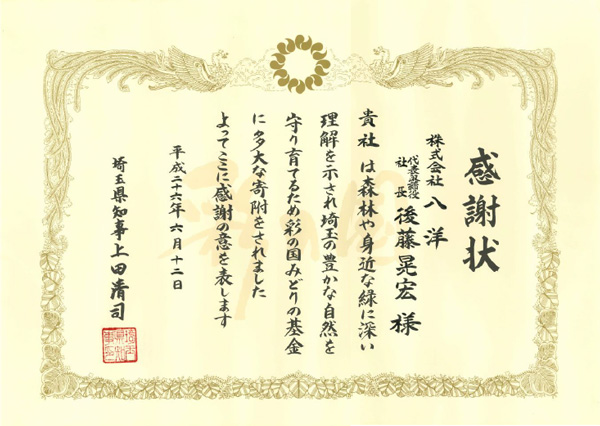 感謝状
株式会社 八洋
代表取締役
社長 後藤晃宏 様
貴社は森林や身近な緑に深い
理解を示され埼玉の豊かな自然を
守り育てるため彩の国みどりの基金
に多大な寄附をされました
よってここに感謝の意を表します
平成二十六年六月十二日
埼玉県知事上田清司